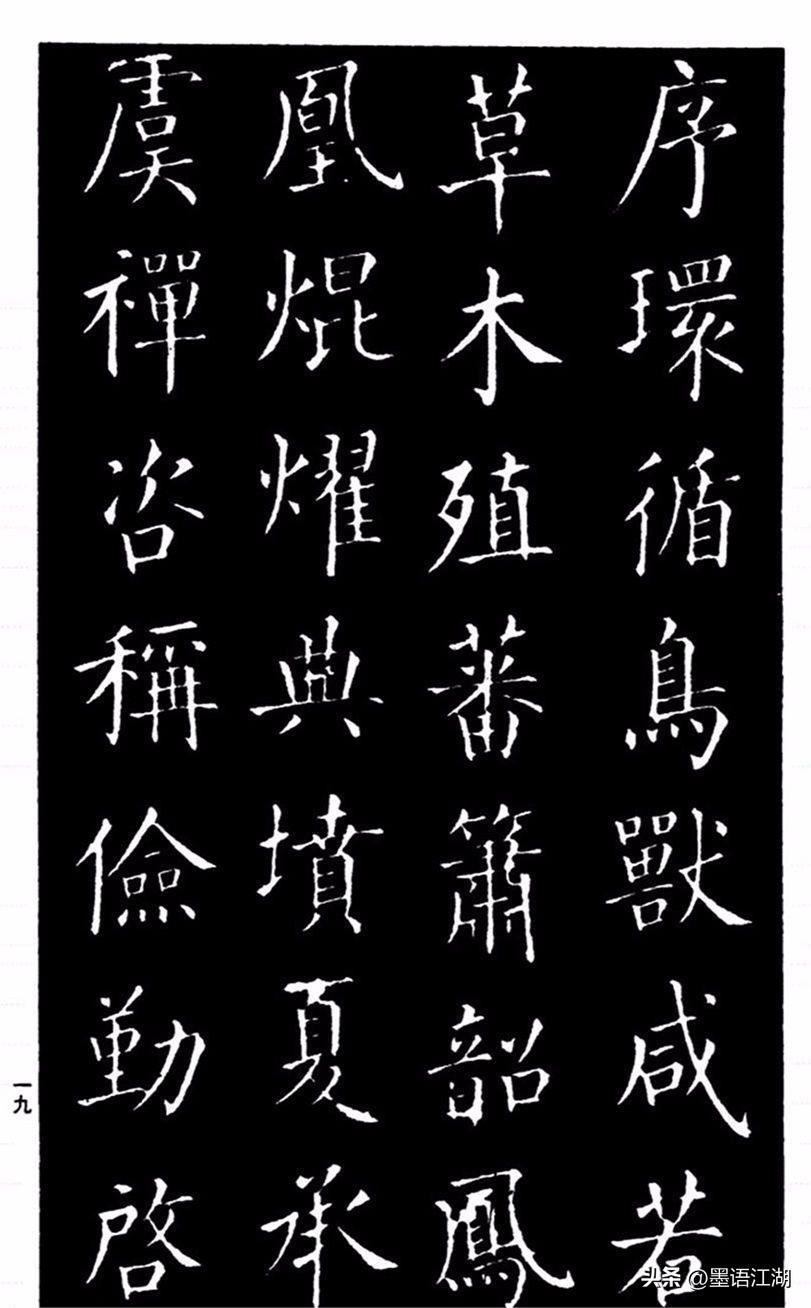 序環循鳥獸咸若
草木殖蕃簫韶鳳
凰焜燿典墳夏承
虞禪咨稱儉勤啓
一九
头条 @墨语江湖